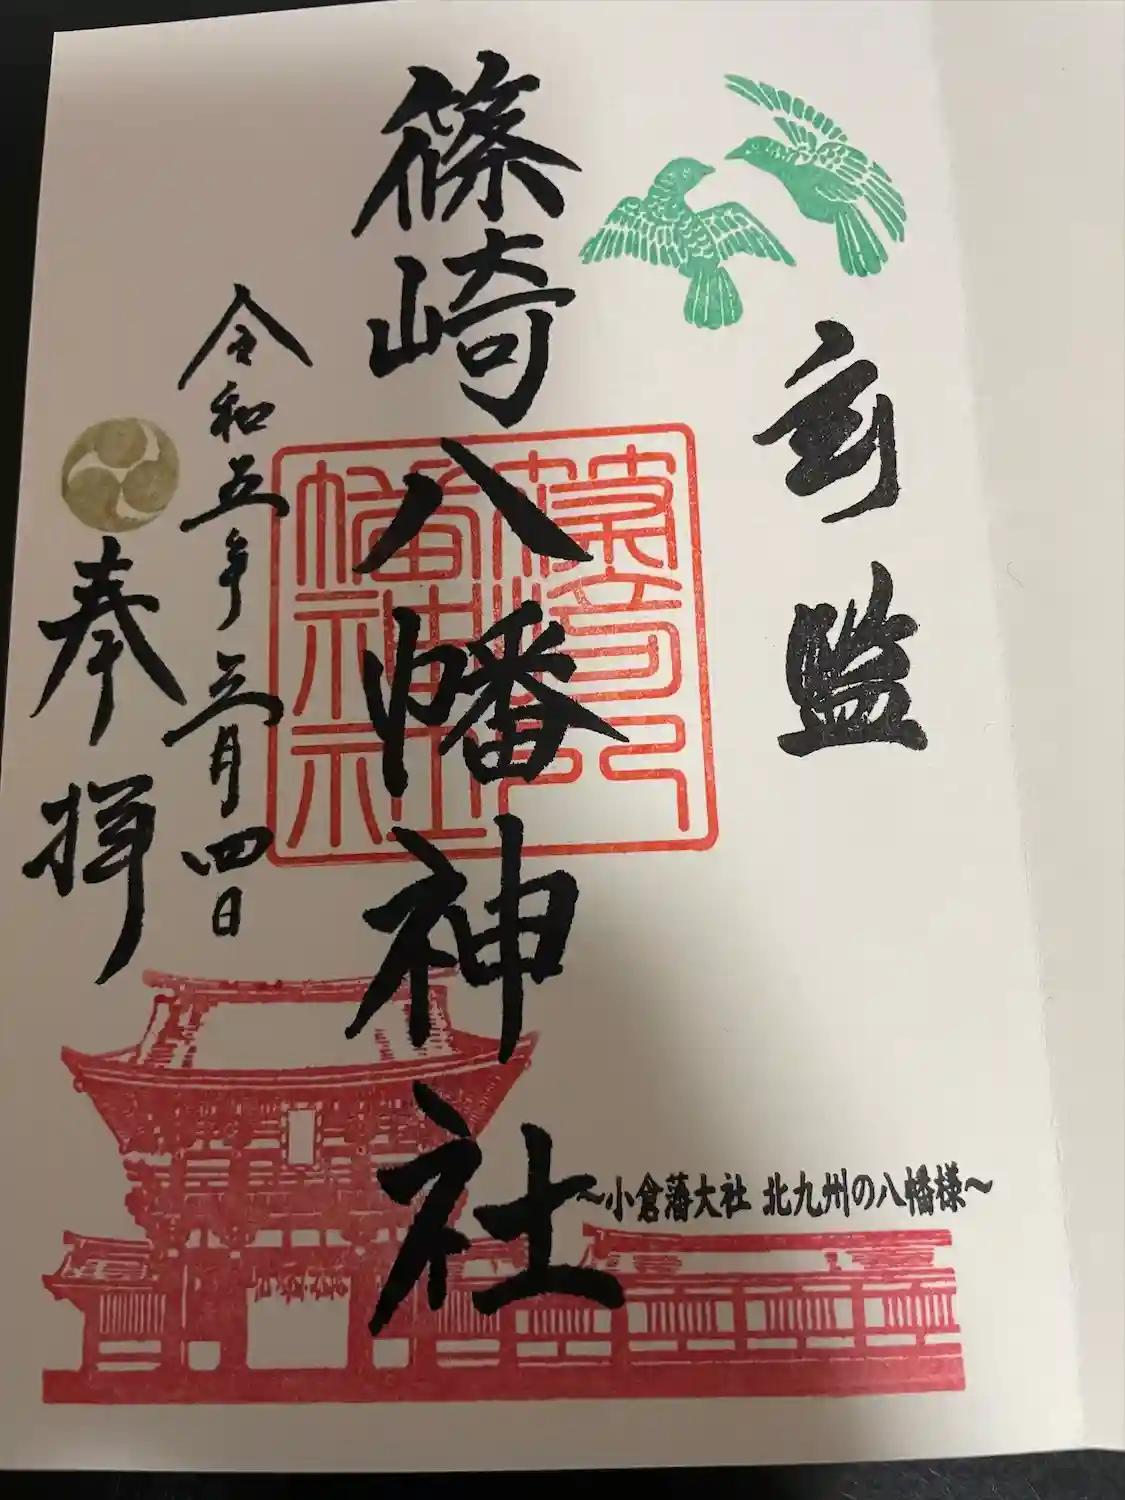 ～小倉藩大社 北九州の八幡様～
篠崎八幡神社
篠崎八
幡神社
令和五年三月四日
奉拝